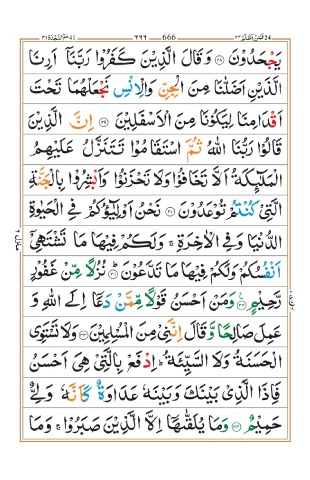 فمن اظلم ٢٤ ٦٦٦ 666 حٰمٓ السجدة ٤١
يَجْحَدُوْنَ ﴿٢٨﴾ وَقَالَ الَّذِيْنَ كَفَرُوْا رَبَّنَاۤ اَرِنَا
الَّذَيْنِ اَضَلّٰنَا مِنَ الْجِنِّ وَالْاِنْسِ نَجْعَلْهُمَا تَحْتَ
اَقْدَامِنَا لِيَكُوْنَا مِنَ الْاَسْفَلِيْنَ ﴿٢٩﴾ اِنَّ الَّذِيْنَ
قَالُوْا رَبُّنَا اللّٰهُ ثُمَّ اسْتَقَامُوْا تَتَنَزَّلُ عَلَيْهِمُ
الْمَلٰٓئِكَةُ اَلَّا تَخَافُوْا وَلَا تَحْزَنُوْا وَاَبْشِرُوْا بِالْجَنَّةِ
الَّتِيْ كُنْتُمْ تُوْعَدُوْنَ ﴿٣٠﴾ نَحْنُ اَوْلِيٰٓؤُكُمْ فِي الْحَيٰوةِ
الدُّنْيَا وَفِي الْاٰخِرَةِ ۚ وَلَكُمْ فِيْهَا مَا تَشْتَهِيْۤ
اَنْفُسُكُمْ وَلَكُمْ فِيْهَا مَا تَدَّعُوْنَ ﴿٣١﴾ نُزُلًا مِّنْ غَفُوْرٍ
رَّحِيْمٍ ﴿٣٢﴾ وَمَنْ اَحْسَنُ قَوْلًا مِّمَّنْ دَعَاۤ اِلَى اللّٰهِ وَ
عَمِلَ صَالِحًا وَّقَالَ اِنَّنِيْ مِنَ الْمُسْلِمِيْنَ ﴿٣٣﴾ وَلَا تَسْتَوِي
الْحَسَنَةُ وَلَا السَّيِّئَةُ ؕ اِدْفَعْ بِالَّتِيْ هِيَ اَحْسَنُ
فَاِذَا الَّذِيْ بَيْنَكَ وَبَيْنَهٗ عَدَاوَةٌ كَاَنَّهٗ وَلِيٌّ
حَمِيْمٌ ﴿٣٤﴾ وَمَا يُلَقّٰىهَاۤ اِلَّا الَّذِيْنَ صَبَرُوْا ۚ وَمَا